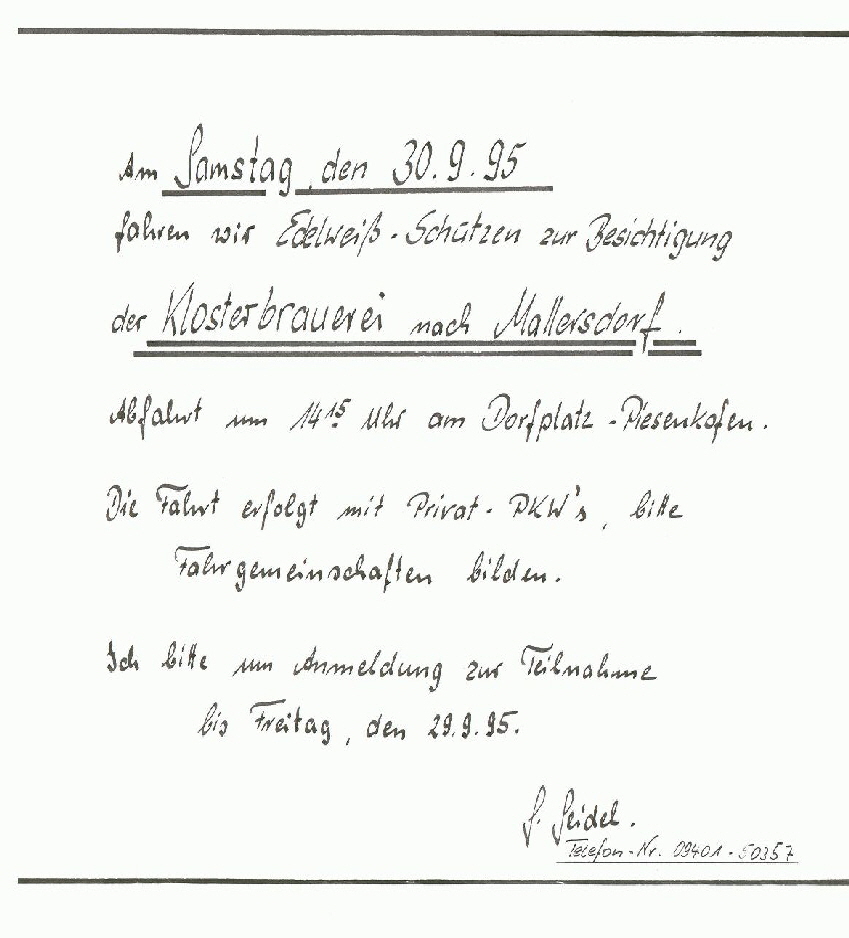 Am Samstag, den 30.9.95
fahren wir Edelweiß-Schützen zur Besichtigung
der Klosterbrauerei nach Mallersdorf.
Abfahrt um 14 15 Uhr am Dorfplatz - Piesenkofen.
Die Fahrt erfolgt mit Privat-PKW's, bitte
Fahrgemeinschaften bilden.
Ich bitte um Anmeldung zur Teilnahme
bis Freitag, den 29.9.95.
G. Seidel.
Telefon-Nr. 09401-50357